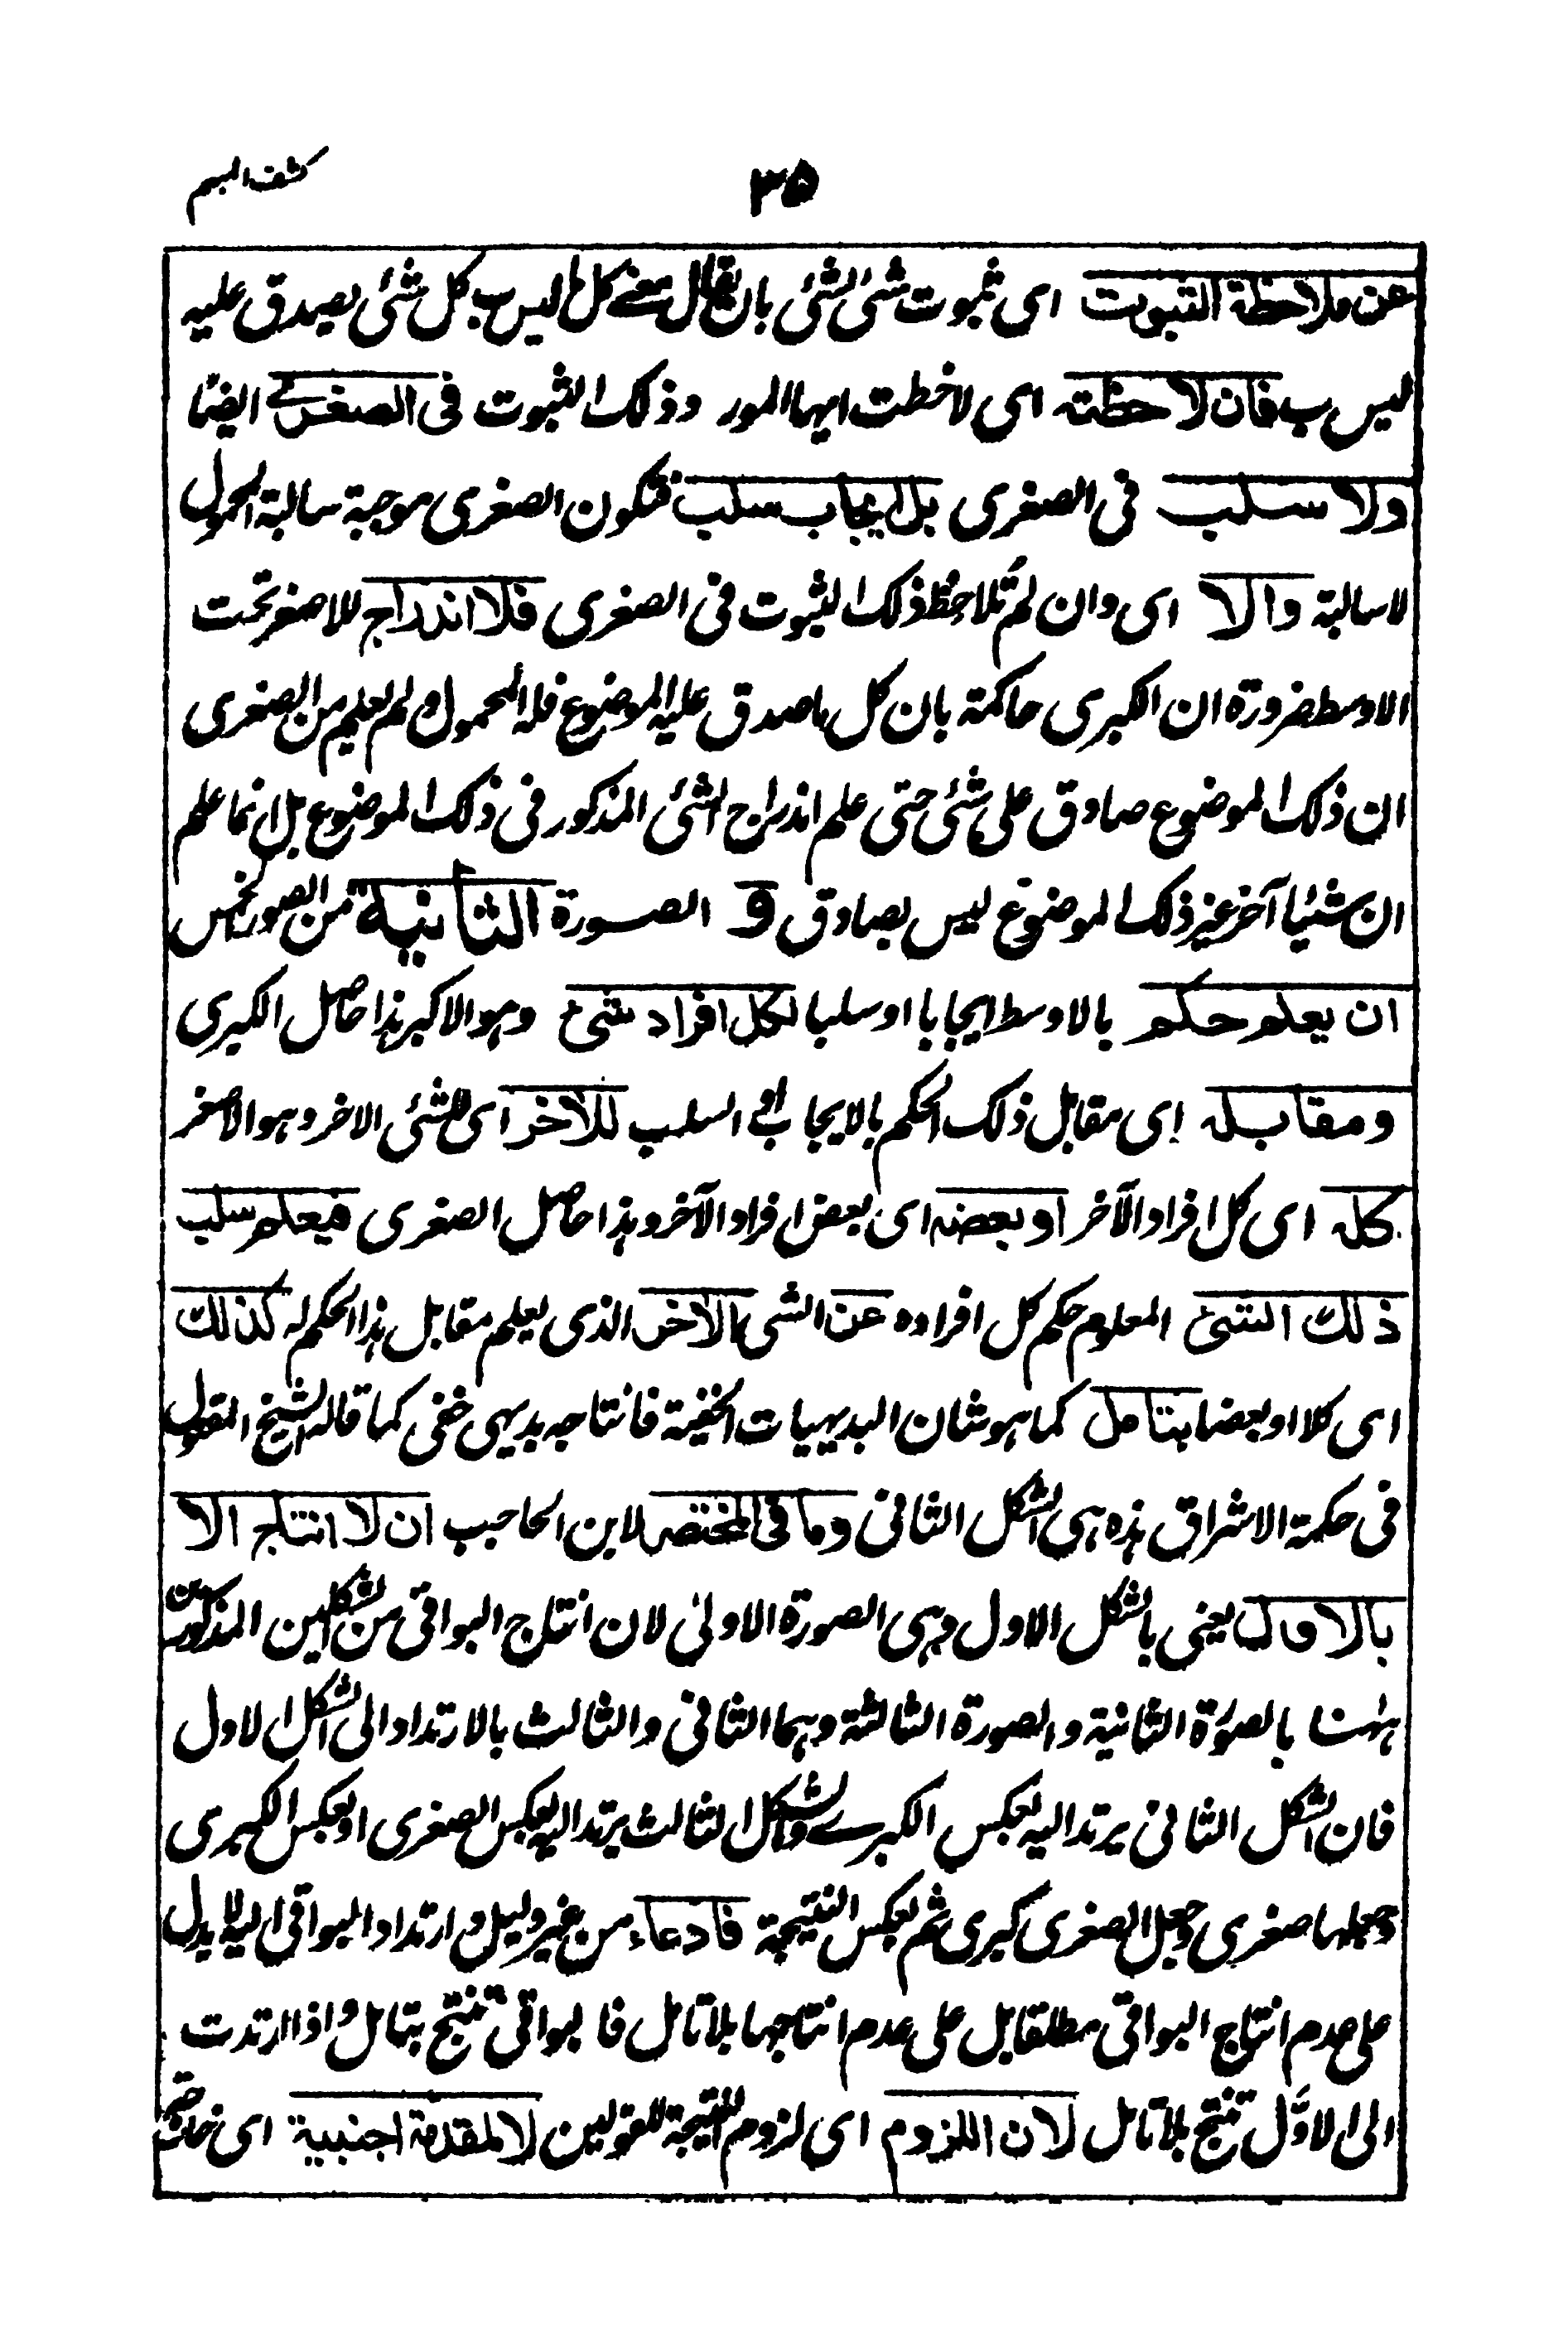 كشف المبهم
٣٥
عن ملاحظة الثبوت اى ثبوت شئ لشئ بان يقال معنے كل ما ليس ب كل شئ يصدق عليه
ليس ب فان لاحظته اى لاحظت ايها المورد ذلك الثبوت فى الصغرے ايضًا
ولا سلب فى الصغرى بل ايجاب سلب فتكون الصغرى موجبة سالبة المحمول
لا سالبة والا اى وان لم تُلاحِظ ذلك الثبوت فى الصغرى فلا اندراج للاصغر تحت
الاوسط ضرورة ان الكبرى حاكمة بان كل ما صدق عليه الموضوع فله المحمول ولم يعلم من الصغرى
ان ذلك الموضوع صادق على شئ حتى علم اندراج الشئ المذكور فى ذلك الموضوع بل انما علم
ان شيئا آخر غير ذلك الموضوع ليس بصادق و الصورة الثانية من الصور الخمس
ان يعلم حكم بالاوسط ايجابا او سلبا لكل افراد شئ وهو الاكبر هذا حاصل الكبرى
ومقابله اى مقابل ذلك الحكم بالايجاب او السلب للاخر اى للشئ الاخر وهو الاصغر
كله اى كل افراد الآخر او بعضه اى بعض افراد الآخر وهذا حاصل الصغرى فيعلم سلب
ذلك الشئ المعلوم حكم كل افراده عن الشئ الاخر الذى يعلم مقابل هذا الحكم له كذلك
اى كلا او بعضا بتامل كما هو شان البديهيات الخفية فانتاجه بديهى خفى كما قاله الشيخ المقتول
فى حكمة الاشراق هذه هى الشكل الثانى وما فى المختصر لابن الحاجب ان لا انتاج الا
بالاول يعنى بالشكل الاول وهى الصورة الاولىٰ لان انتاج البواقى من الشكلين المذكورين
هٰهنا بالصورة الثانية والصورة الثالثة وهما الثانى والثالث بالارتداد الى الشكل الاول
فان الشكل الثانى يرتد اليه بعكس الكبرے والشكل الثالث يرتد اليه بعكس الصغرى او بعكس الكبرى
وجعلها صغرى وجعل الصغرى كبرى ثم بعكس النتيجة فادعاء من غير دليل وارتداد البواقى اليه لا يدل
على عدم انتاج البواقى مطلقا بل على عدم انتاجها بلا تامل فالبواقى تنتج بتامل واذا ارتدت
الى الاوّل تنتج بلا تامل لان اللزوم اى لزوم النتيجة للقولين لا لمقدمة اجنبية اى خارجة